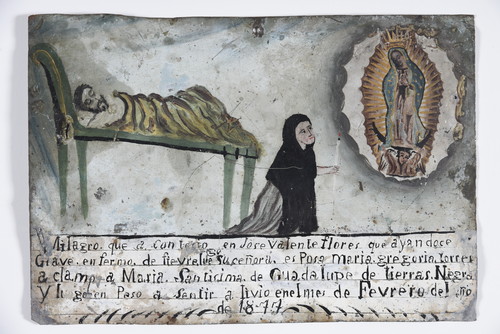 Milagro que a contesio en Jose Valente flores que ayandose
Grave enfermo de fievre su Señora es Posa maria gregoria torres
a clamo a Maria Santicima de Guadalupe de tierras Negra
y en Peso a Sentir a livio en el mes de Fevrero del
de 1844